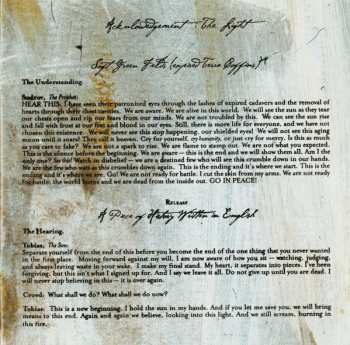 Acknowledgement The Light
Soft Green Fields (expired Terra Coffins)
The Understanding.
The Prophet:
HEAR THIS. I have seen their patronized eyes through the lashes of expired cadavers and the removal of
hearts through their chest cavities. We are aware. We are alive in this world. We will see the sun as they tear
our chests open and rip our fears from our minds. We are not troubled by this. We can see the sun rise
and fall with frost at our feet and blood in our eyes. Still, there is more life for everyone, and we have not
chosen this existence. We will never see this stop happening, our shielded eyes! We will not see this aging
moon until it soars! They call a banner. Cry for yourself, cry honestly, or just cry for mercy. Is this as much
as you care to fake? We are not a spark to rise. We are flame to stamp out. We are not what you expected.
This is the silence before the beginning. We are aware - this is the end and we will show them all. Am I the
only one? So this! Watch in disbelief - we are a destined few who will see this crumble down in our hands.
We are the few who watch as this crumbles down again. This is the ending and it's where we start. This is the
ending and it's where we are. Go! We are not ready for battle. I cut the skin from my arms. We are not ready
for battle; the world burns and we are dead from the inside out. GO IN PEACE!
Release
A Piece of History Written in English
The Hearing.
Tobias: The Son:
Separate yourself from the end of this before you become the end of the one thing that you never wanted
in the first place. Moving forward against my will, I am now aware of how you sit - watching, judging,
and always leaving waste in your wake. I make my final stand. My heart, it separates into pieces. I've been
forgiving, but this isn't what I signed up for. And I say we leave it all. Do not give up until you are dead. I
will never stop believing in this - it is over again.
Crowd: What shall we do? What shall we do now?
Tobias: This is a new beginning. I hold the sun in my hands. And if you let me save you, we will bring
means to this end. Again and again we believe, looking into this light. And we still scream, burning in
this fire.